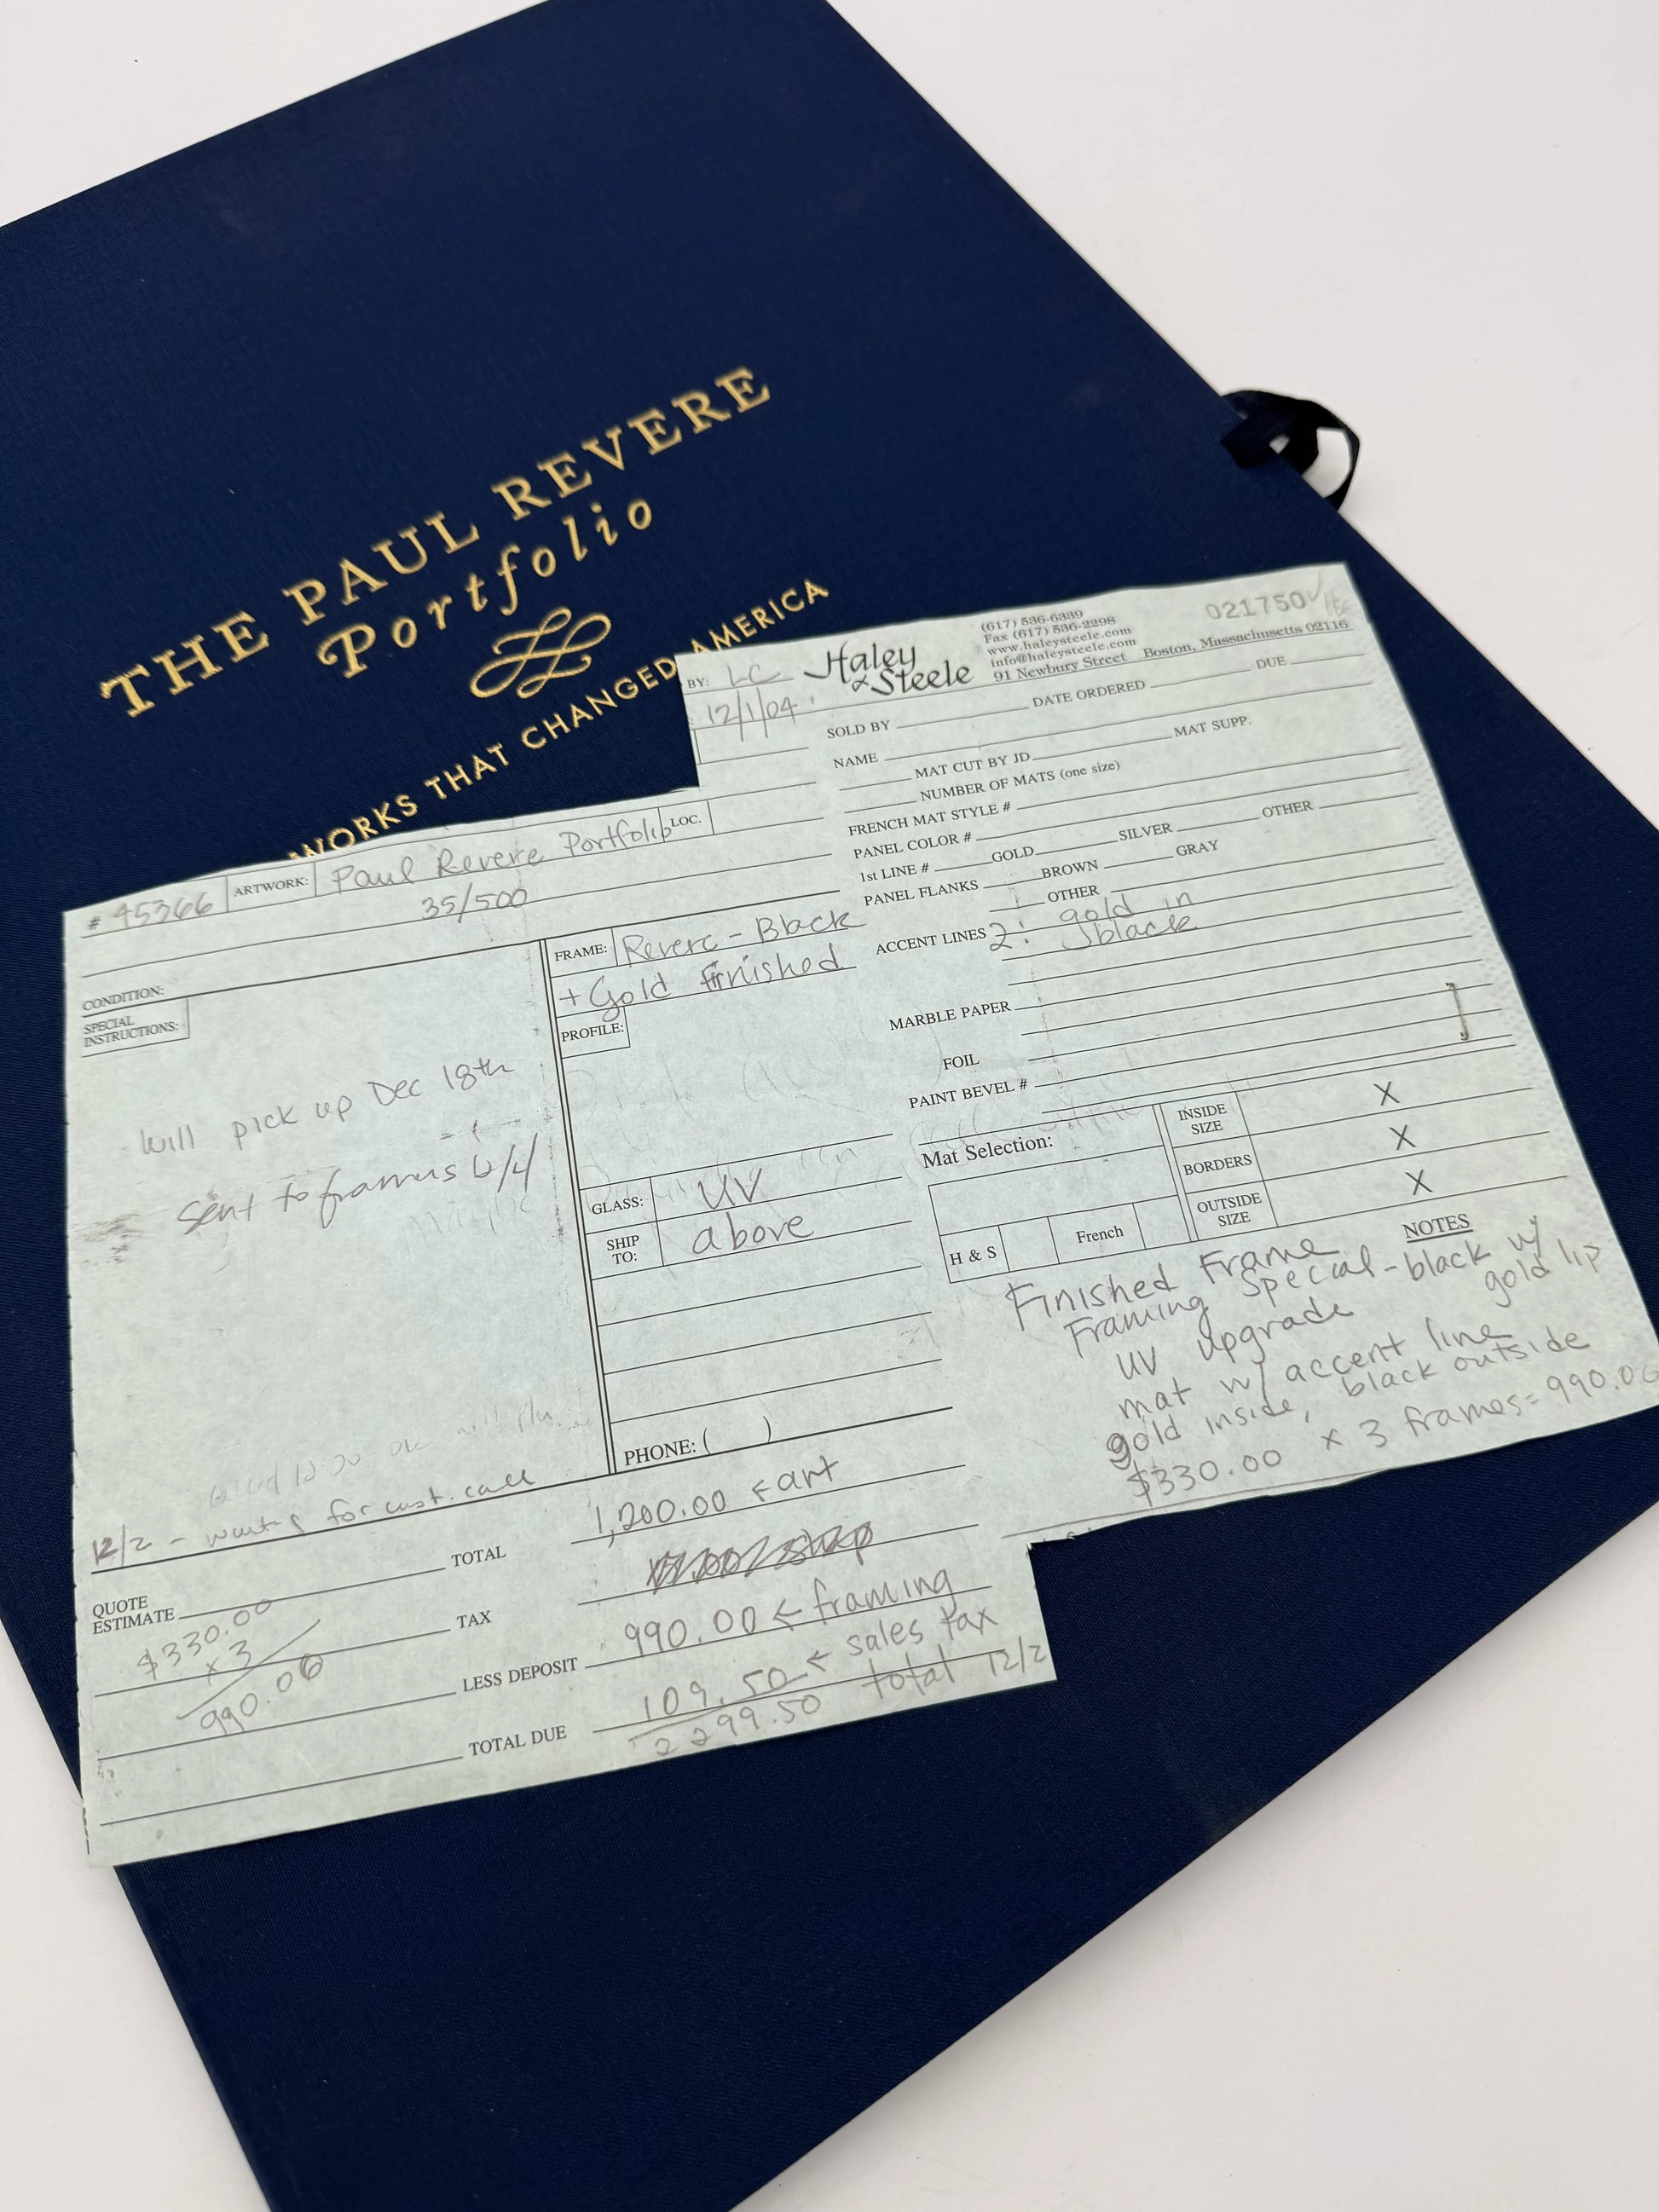 THE PAUL REVERE
Portfolio
WORKS THAT CHANGED AMERICA
BY: LC
12/1/04
Haley
& Steele
(617) 536-6339
Fax (617) 536-2298
www.haleysteele.com
info@haleysteele.com
91 Newbury Street Boston, Massachusetts 02116
021750
SOLD BY DATE ORDERED DUE
NAME
MAT CUT BY JD MAT SUPP.
NUMBER OF MATS (one size)
FRENCH MAT STYLE #
PANEL COLOR #
1st LINE # GOLD SILVER OTHER
PANEL FLANKS BROWN GRAY
OTHER
ACCENT LINES 2: gold in
black
MARBLE PAPER
FOIL
PAINT BEVEL #
# 45366 ARTWORK: Paul Revere Portfolio LOC.
35/500
CONDITION:
SPECIAL
INSTRUCTIONS:
- Will pick up Dec 18th
Sent to framers
12/2 - waiting for cust. call
FRAME: Revere - Black
+ Gold Finished
PROFILE:
GLASS: UV
SHIP
TO: above
PHONE: ( )
Mat Selection:
H & S French
INSIDE
SIZE X
BORDERS X
OUTSIDE
SIZE X
NOTES
Finished Frame
Framing Special - black w/
gold lip
UV upgrade
mat w/ accent line
gold inside, black outside
$330.00 x 3 frames = 990.00
QUOTE
ESTIMATE
$330.00
x 3
990.00
TOTAL 1,200.00 ← art
TAX
LESS DEPOSIT 990.00 ← framing
109.50 ← sales tax
TOTAL DUE 2299.50 total 12/2